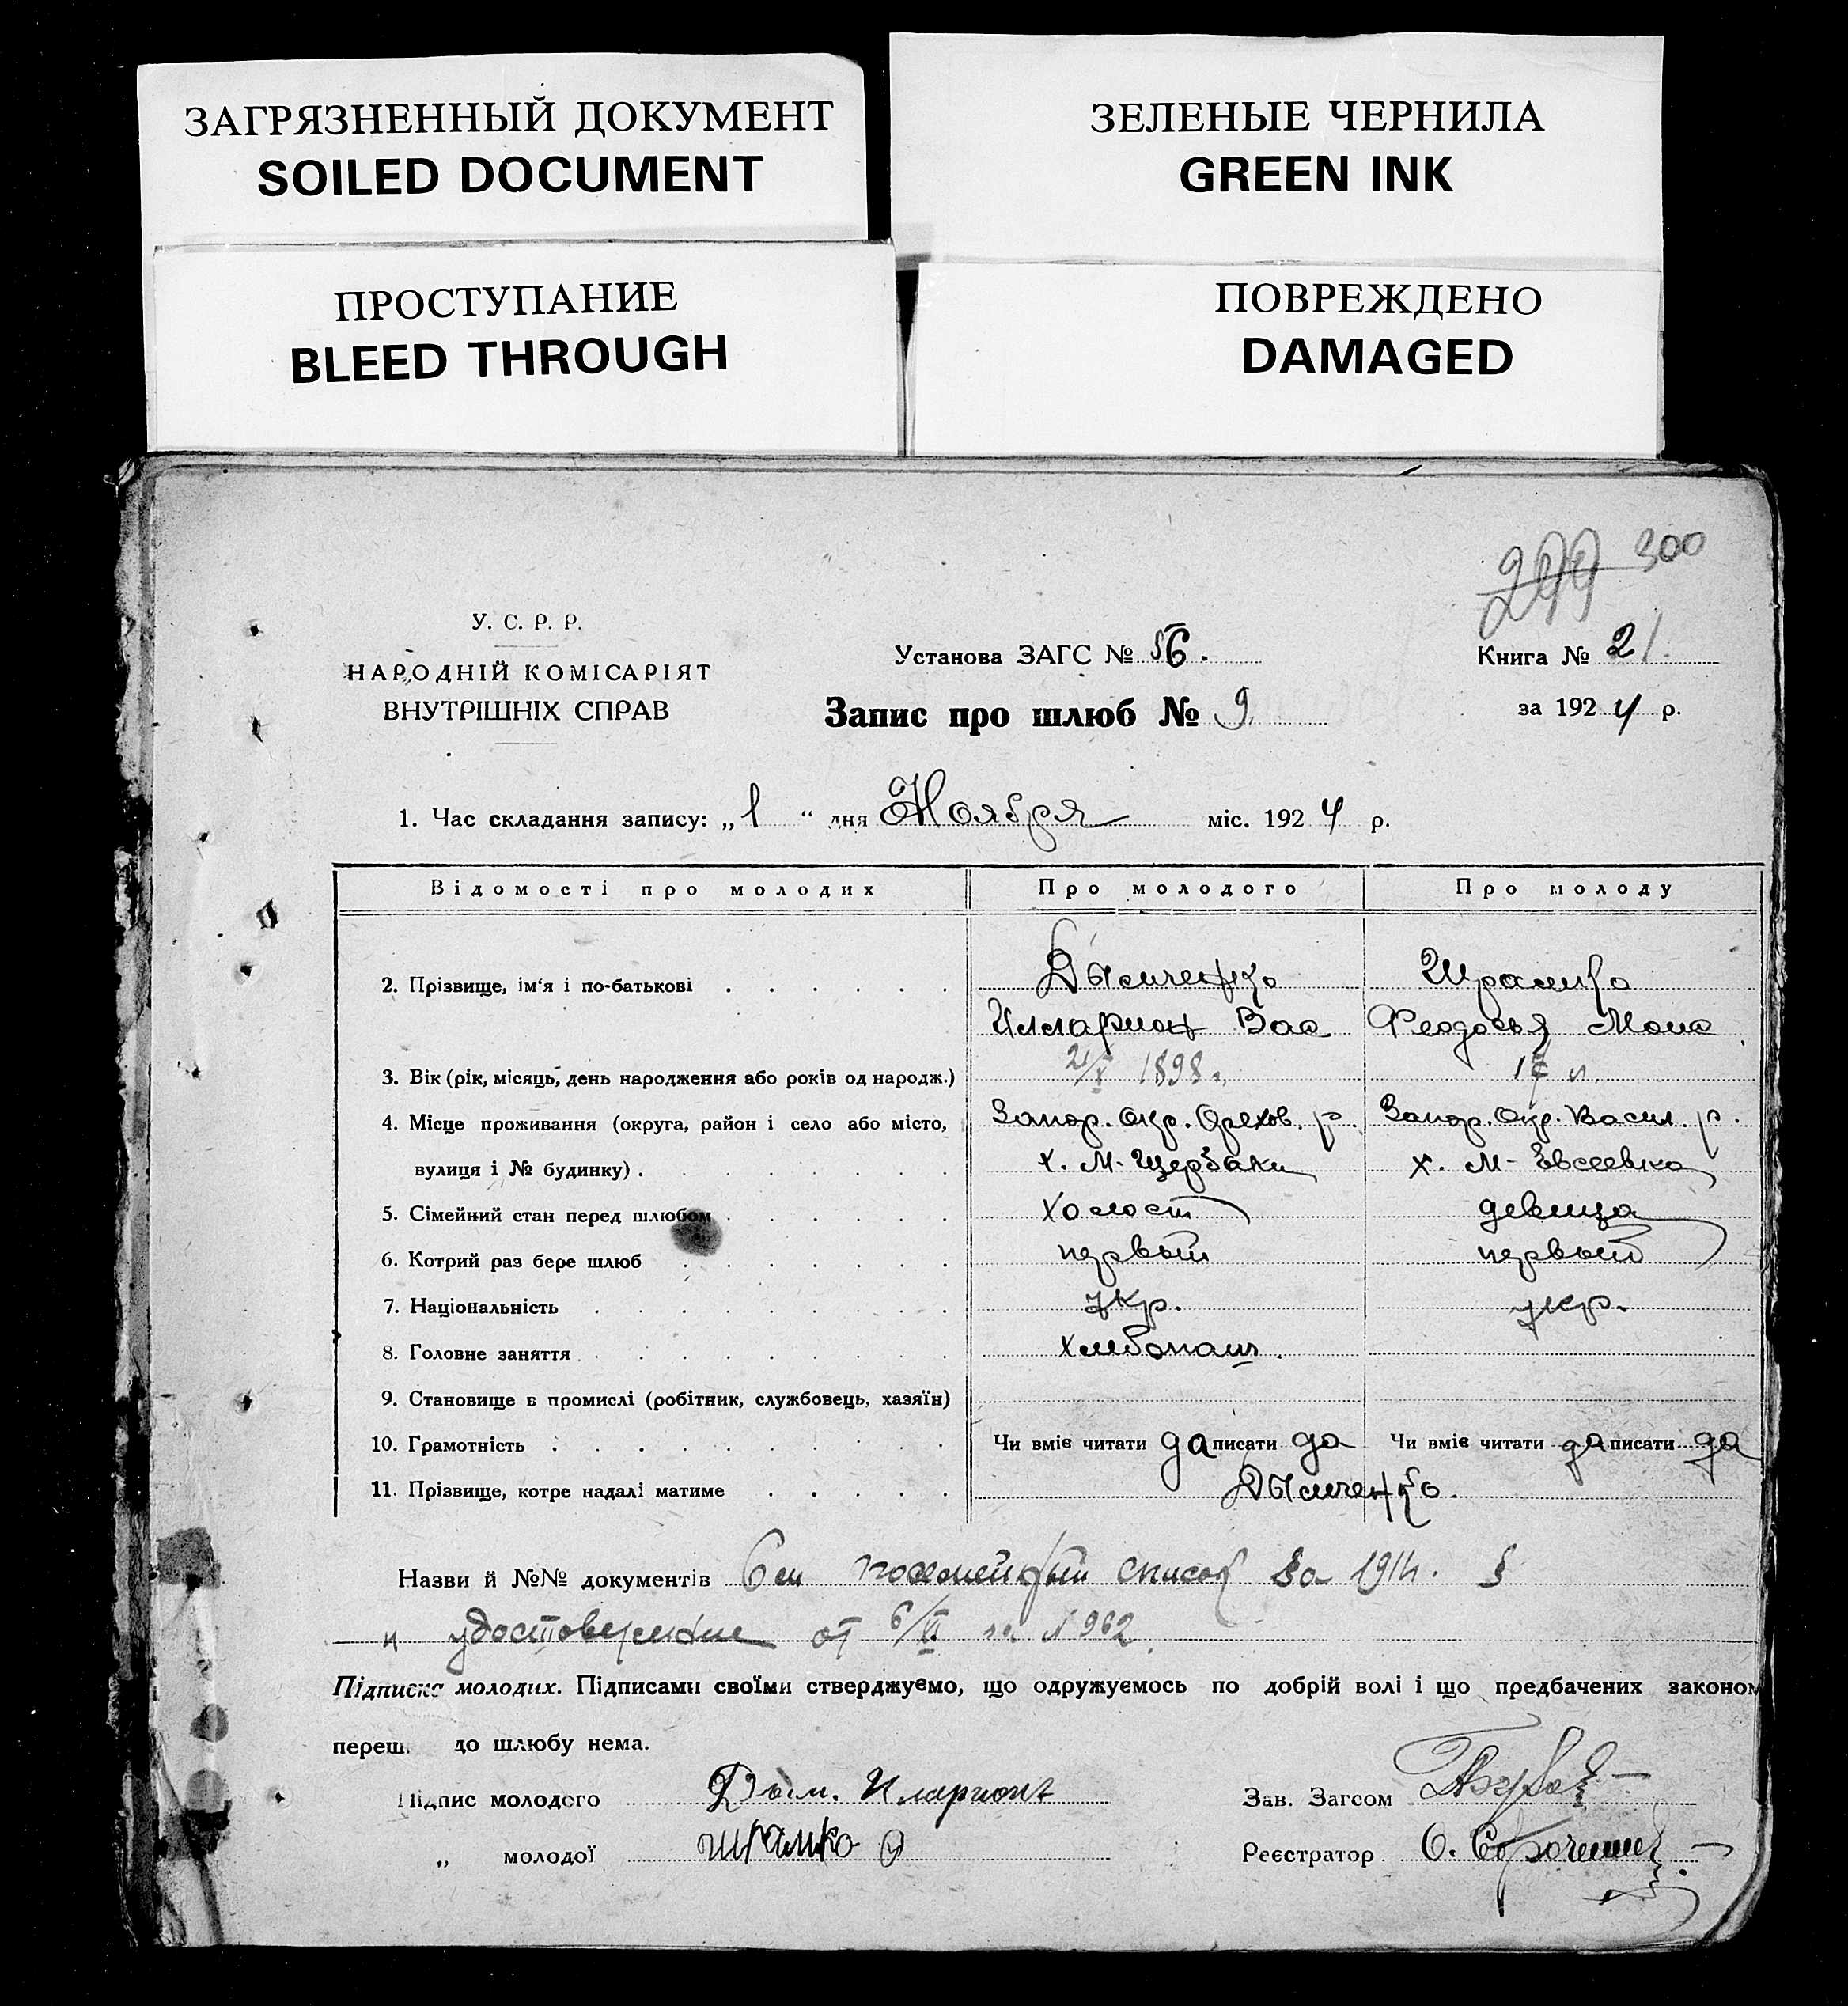 ЗАГРЯЗНЕННЫЙ ДОКУМЕНТ
SOILED DOCUMENT
ЗЕЛЕНЫЕ ЧЕРНИЛА
GREEN INK
ПРОСТУПАНИЕ
BLEED THROUGH
ПОВРЕЖДЕНО
DAMAGED
299 300
У. С. Р. Р.
НАРОДНІЙ КОМІСАРІЯТ
ВНУТРІШНІХ СПРАВ
Установа ЗАГС № 56.
Книга № 21.
Запис про шлюб № 9
за 1924 р.
1. Час складання запису: „1“ дня Ноября міс. 1924 р.
Відомості про молодих Про молодого Про молоду
2. Прізвище, ім'я і по-батькові Дымченко Шрамко
Илларион Вас Феодосья Моис
3. Вік (рік, місяць, день народження або років од народж.) 21/X 1898 г. 17 л.
4. Місце проживання (округа, район і село або місто, Запор. Окр. Орехов. р. Запор. Окр. Васил. р.
вулиця і № будинку) . х. М-Щербаки х. М-Евсеевка
5. Сімейний стан перед шлюбом холост девица
6. Котрий раз бере шлюб первый первый
7. Національність укр. укр.
8. Головне заняття хлебопаш.
9. Становище в промислі (робітник, службовець, хазяїн)
10. Грамотність Чи вміє читати да писати да Чи вміє читати да писати да
11. Прізвище, котре надалі матиме Дымченко.
Назви й №№ документів посемейный список за 1914.
и удостоверение от 6/VI за № 962
Підписка молодих. Підписами своїми стверджуємо, що одружуємось по добрій волі і що предбачених законом
переш. до шлюбу нема.
Підпис молодого Дым. Иларионъ
Зав. Загсом
„ молодої Шрамко Ф
Реєстратор О.